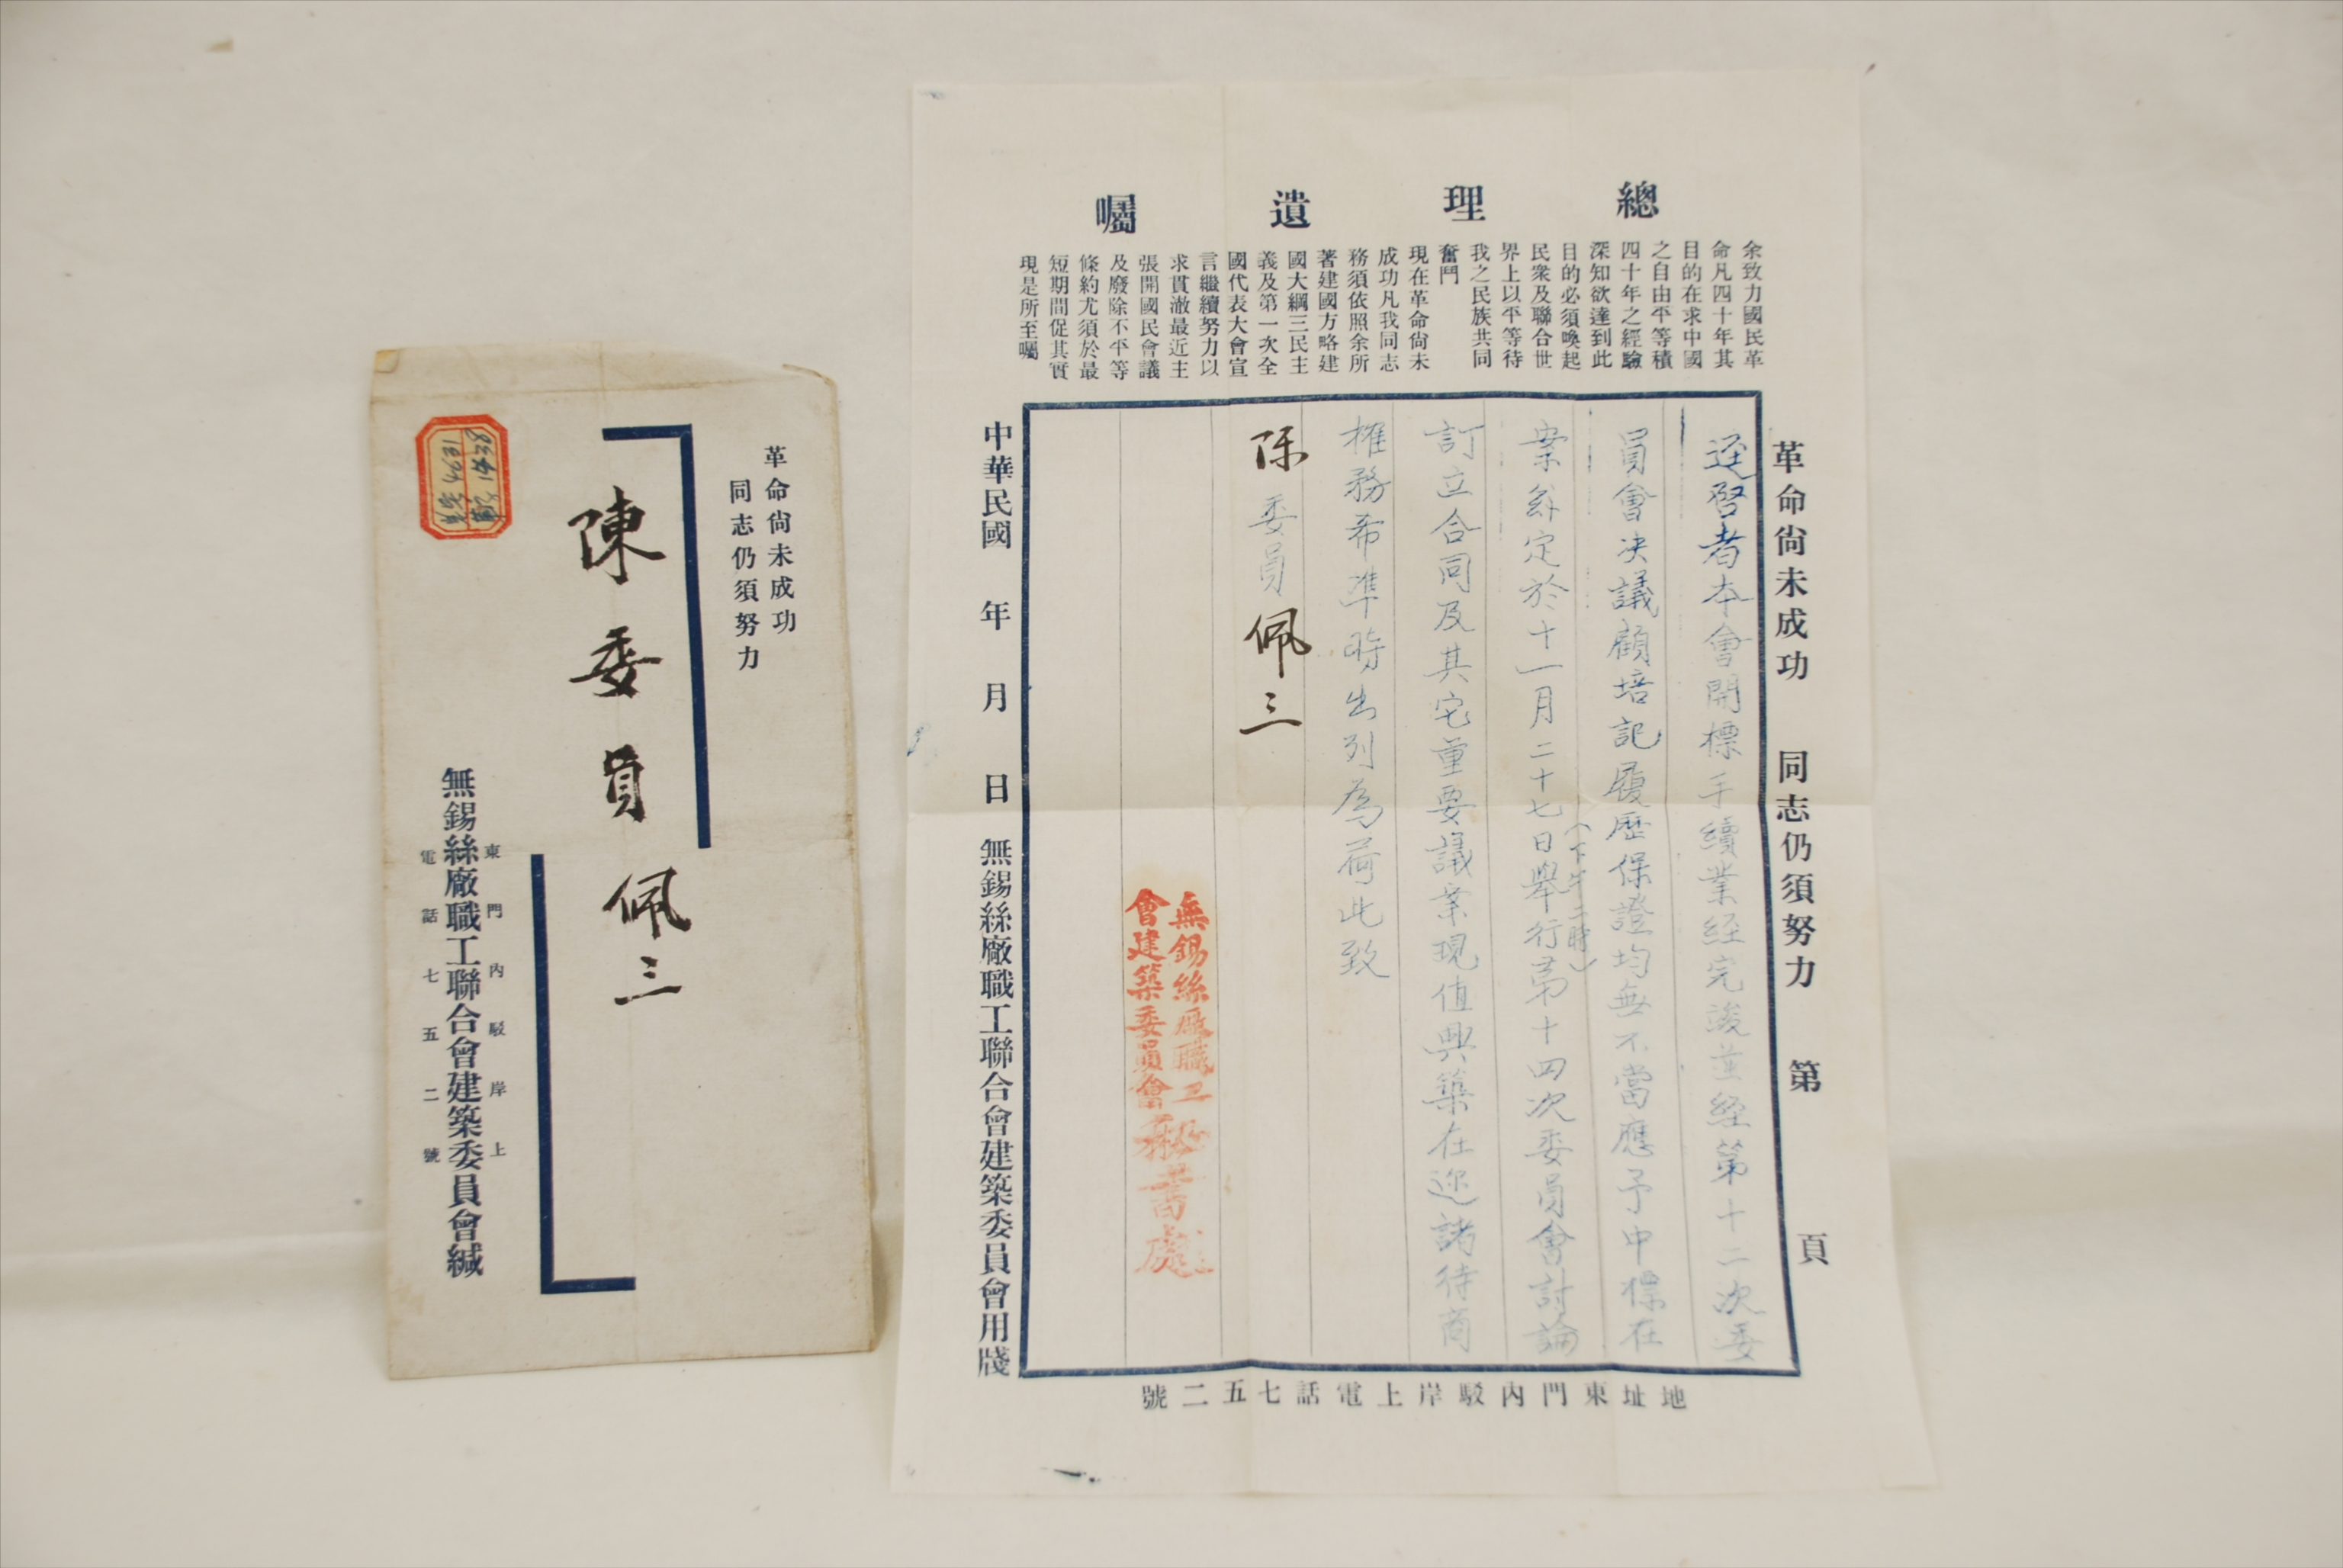 革命尚未成功
同志仍須努力
陳委員佩三
東門內駁岸上
無錫絲廠職工聯合會建築委員會緘
電話七五二號
總理遺囑
余致力國民革
命凡四十年其
目的在求中國
之自由平等積
四十年之經驗
深知欲達到此
目的必須喚起
民衆及聯合世
界上以平等待
我之民族共同
奮鬥
現在革命尚未
成功凡我同志
務須依照余所
著建國方略建
國大綱三民主
義及第一次全
國代表大會宣
言繼續努力以
求貫澈最近主
張開國民會議
及廢除不平等
條約尤須於最
短期間促其實
現是所至囑
革命尚未成功 同志仍須努力 第 頁
逕啓者本會開標手續業经完竣並经第十二次委
員會决議顧培記履歷保證均無不當應予中標在
案茲定於十一月二十七日舉行第十四次委員會討論
（下午二時）
訂立合同及其它重要議案現值興築在迩諸待商
榷務希準時出列為荷此致
陈委員佩三
無錫絲厰職工
會建築委員會
秘書處
中華民國 年 月 日 無錫絲廠職工聯合會建築委員會用牋
地址東門內駁岸上電話七五二號